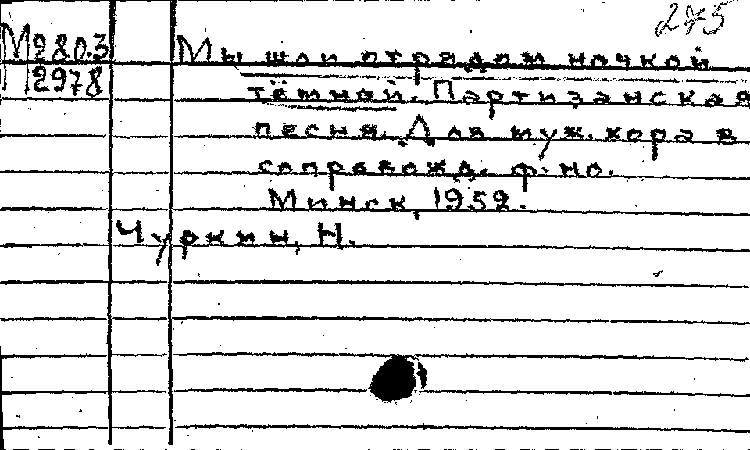 275
М280.3
12978
Мы шли отрядом ночкой
тёмной. Партизанская
песня. Для муж. хора в
сопровожд. ф-но.
Минск, 1952.
Чуркин, Н.